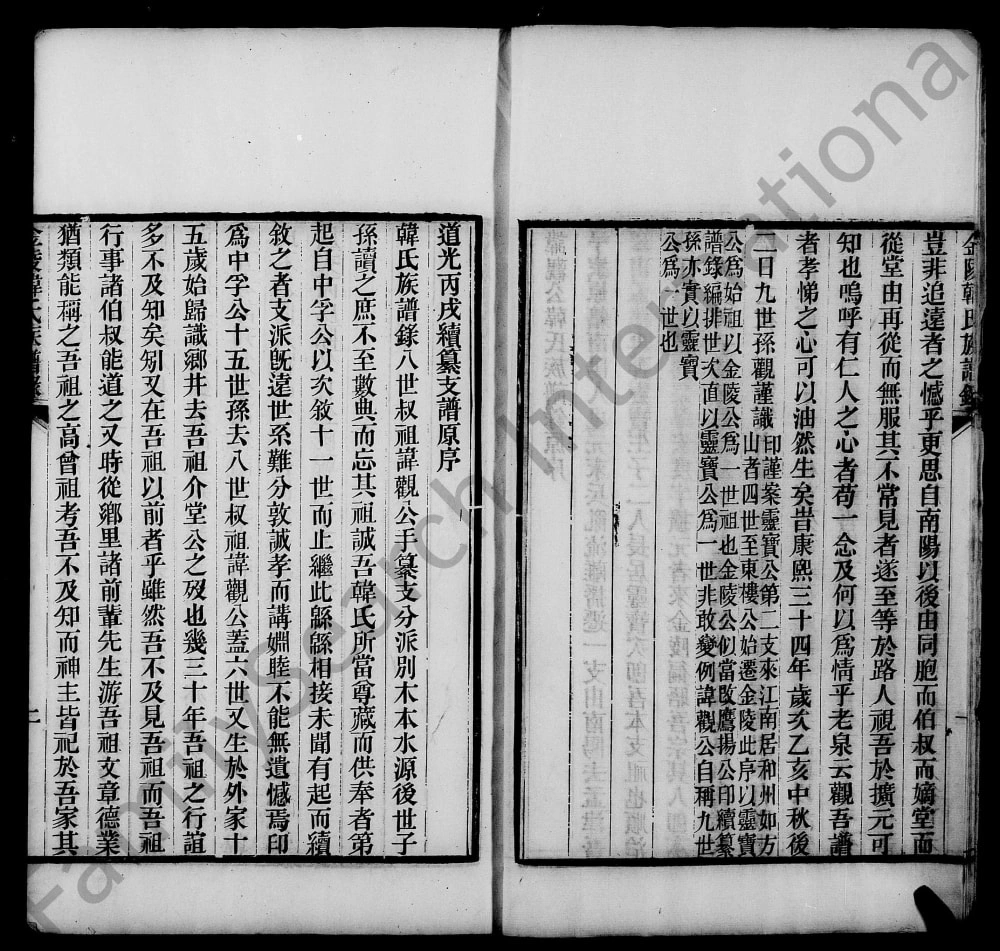 豈非追遠者之憾乎更思自南陽以後由同胞而伯叔而嫡堂而
從堂由再從而無服其不常見者遂至等於路人視吾於擴元可
知也嗚呼有仁人之心者苟一念及何以爲情乎老泉云觀吾譜
者孝悌之心可以油然生矣旹康熙三十四年歲次乙亥中秋後
二日九世孫觀謹識
印謹案靈寶公第二支來江南居和州如方
山者四世至東樓公始遷金陵此序以靈寶
公爲始祖以金陵公爲一世祖也金陵公似當改鷹揚公印續纂
譜錄編排世次直以靈寶公爲一世非敢變例諱觀公自稱九世
孫亦實以靈寶
公爲一世也
道光丙戌續纂支譜原序
韓氏族譜錄八世叔祖諱觀公手纂支分派別木本水源後世子
孫讀之庶不至數典而忘其祖誠吾韓氏所當尊藏而供奉者第
起自中孚公以次敘十一世而止繼此緜緜相接未聞有起而續
敘之者支派旣遠世系難分敦誠孝而講婣睦不能無遺憾焉印
爲中孚公十五世孫去八世叔祖諱觀公蓋六世又生於外家十
五歲始歸識鄉井去吾祖介堂公之歿也幾三十年吾祖之行誼
多不及知矣矧又在吾祖以前者乎雖然吾不及見吾祖而吾祖
行事諸伯叔能道之又時從鄉里諸前輩先生游吾祖文章德業
猶類能稱之吾祖之高曾祖考吾不及知而神主皆祀於吾家其
金陵韓氏族譜錄
FamilySearch International